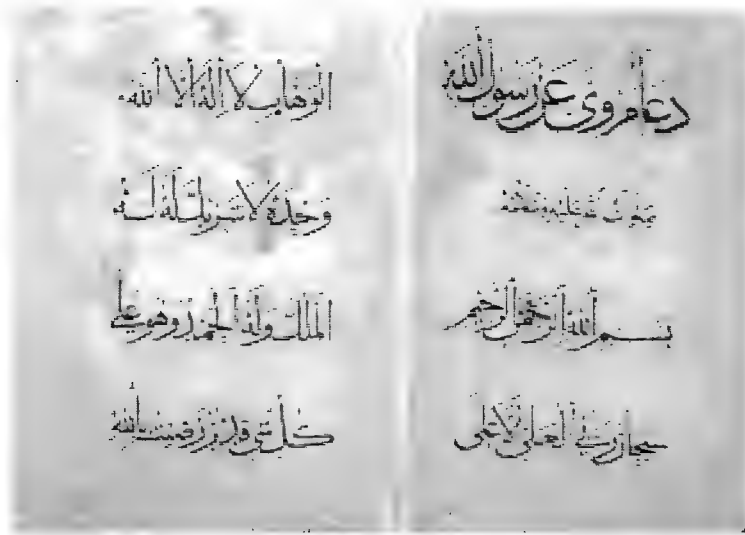 دعا مروي عن رسول الله
بسم الله الرحمن الرحيم
سبحان ربي العلي الاعلى
الوهاب لا اله الا الله
وحده لا شريك له له
الملك وله الحمد وهو على
كل شيء قدير رضيت بالله